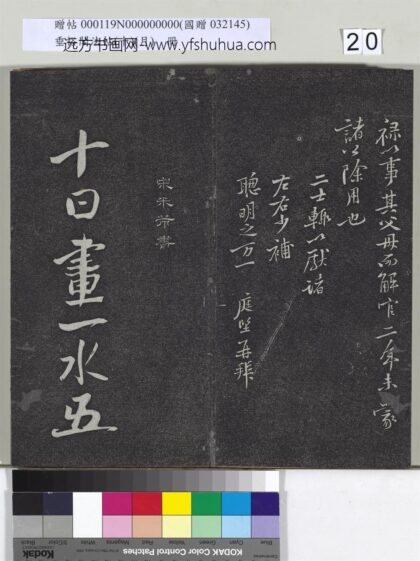 贈帖 000119N000000000(國贈 032145)
远方书画网-www.yfshuhua.com
20
祿以事其父母而解官二年未蒙
諸公除用也
二士輒以獻諸
左右少補
聰明之万一 庭堅再拜
宋米芾書
十日畫一水五
Blue Cyan Green Yellow Red Magenta White 3/Color Black
KODAK Color Control Patches
Kodak